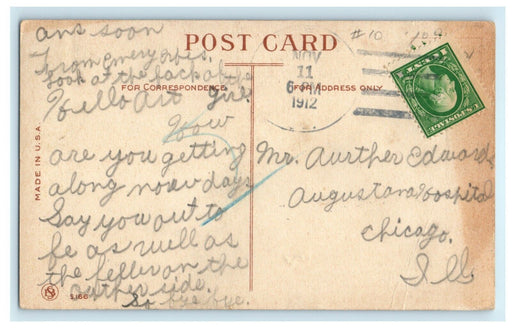 ans soon
From emery
Look at the back of the
POST CARD
FOR CORRESPONDENCE
FOR ADDRESS ONLY
NOV
11
1912
#10
Hello Art
How
are you getting
along now days
Say you out to
be as well as
the feller on the
outher side.
So bye bye.
Mr. Aurther Edwards
Augustana Hospital
Chicago.
Ill
MADE IN U.S.A.